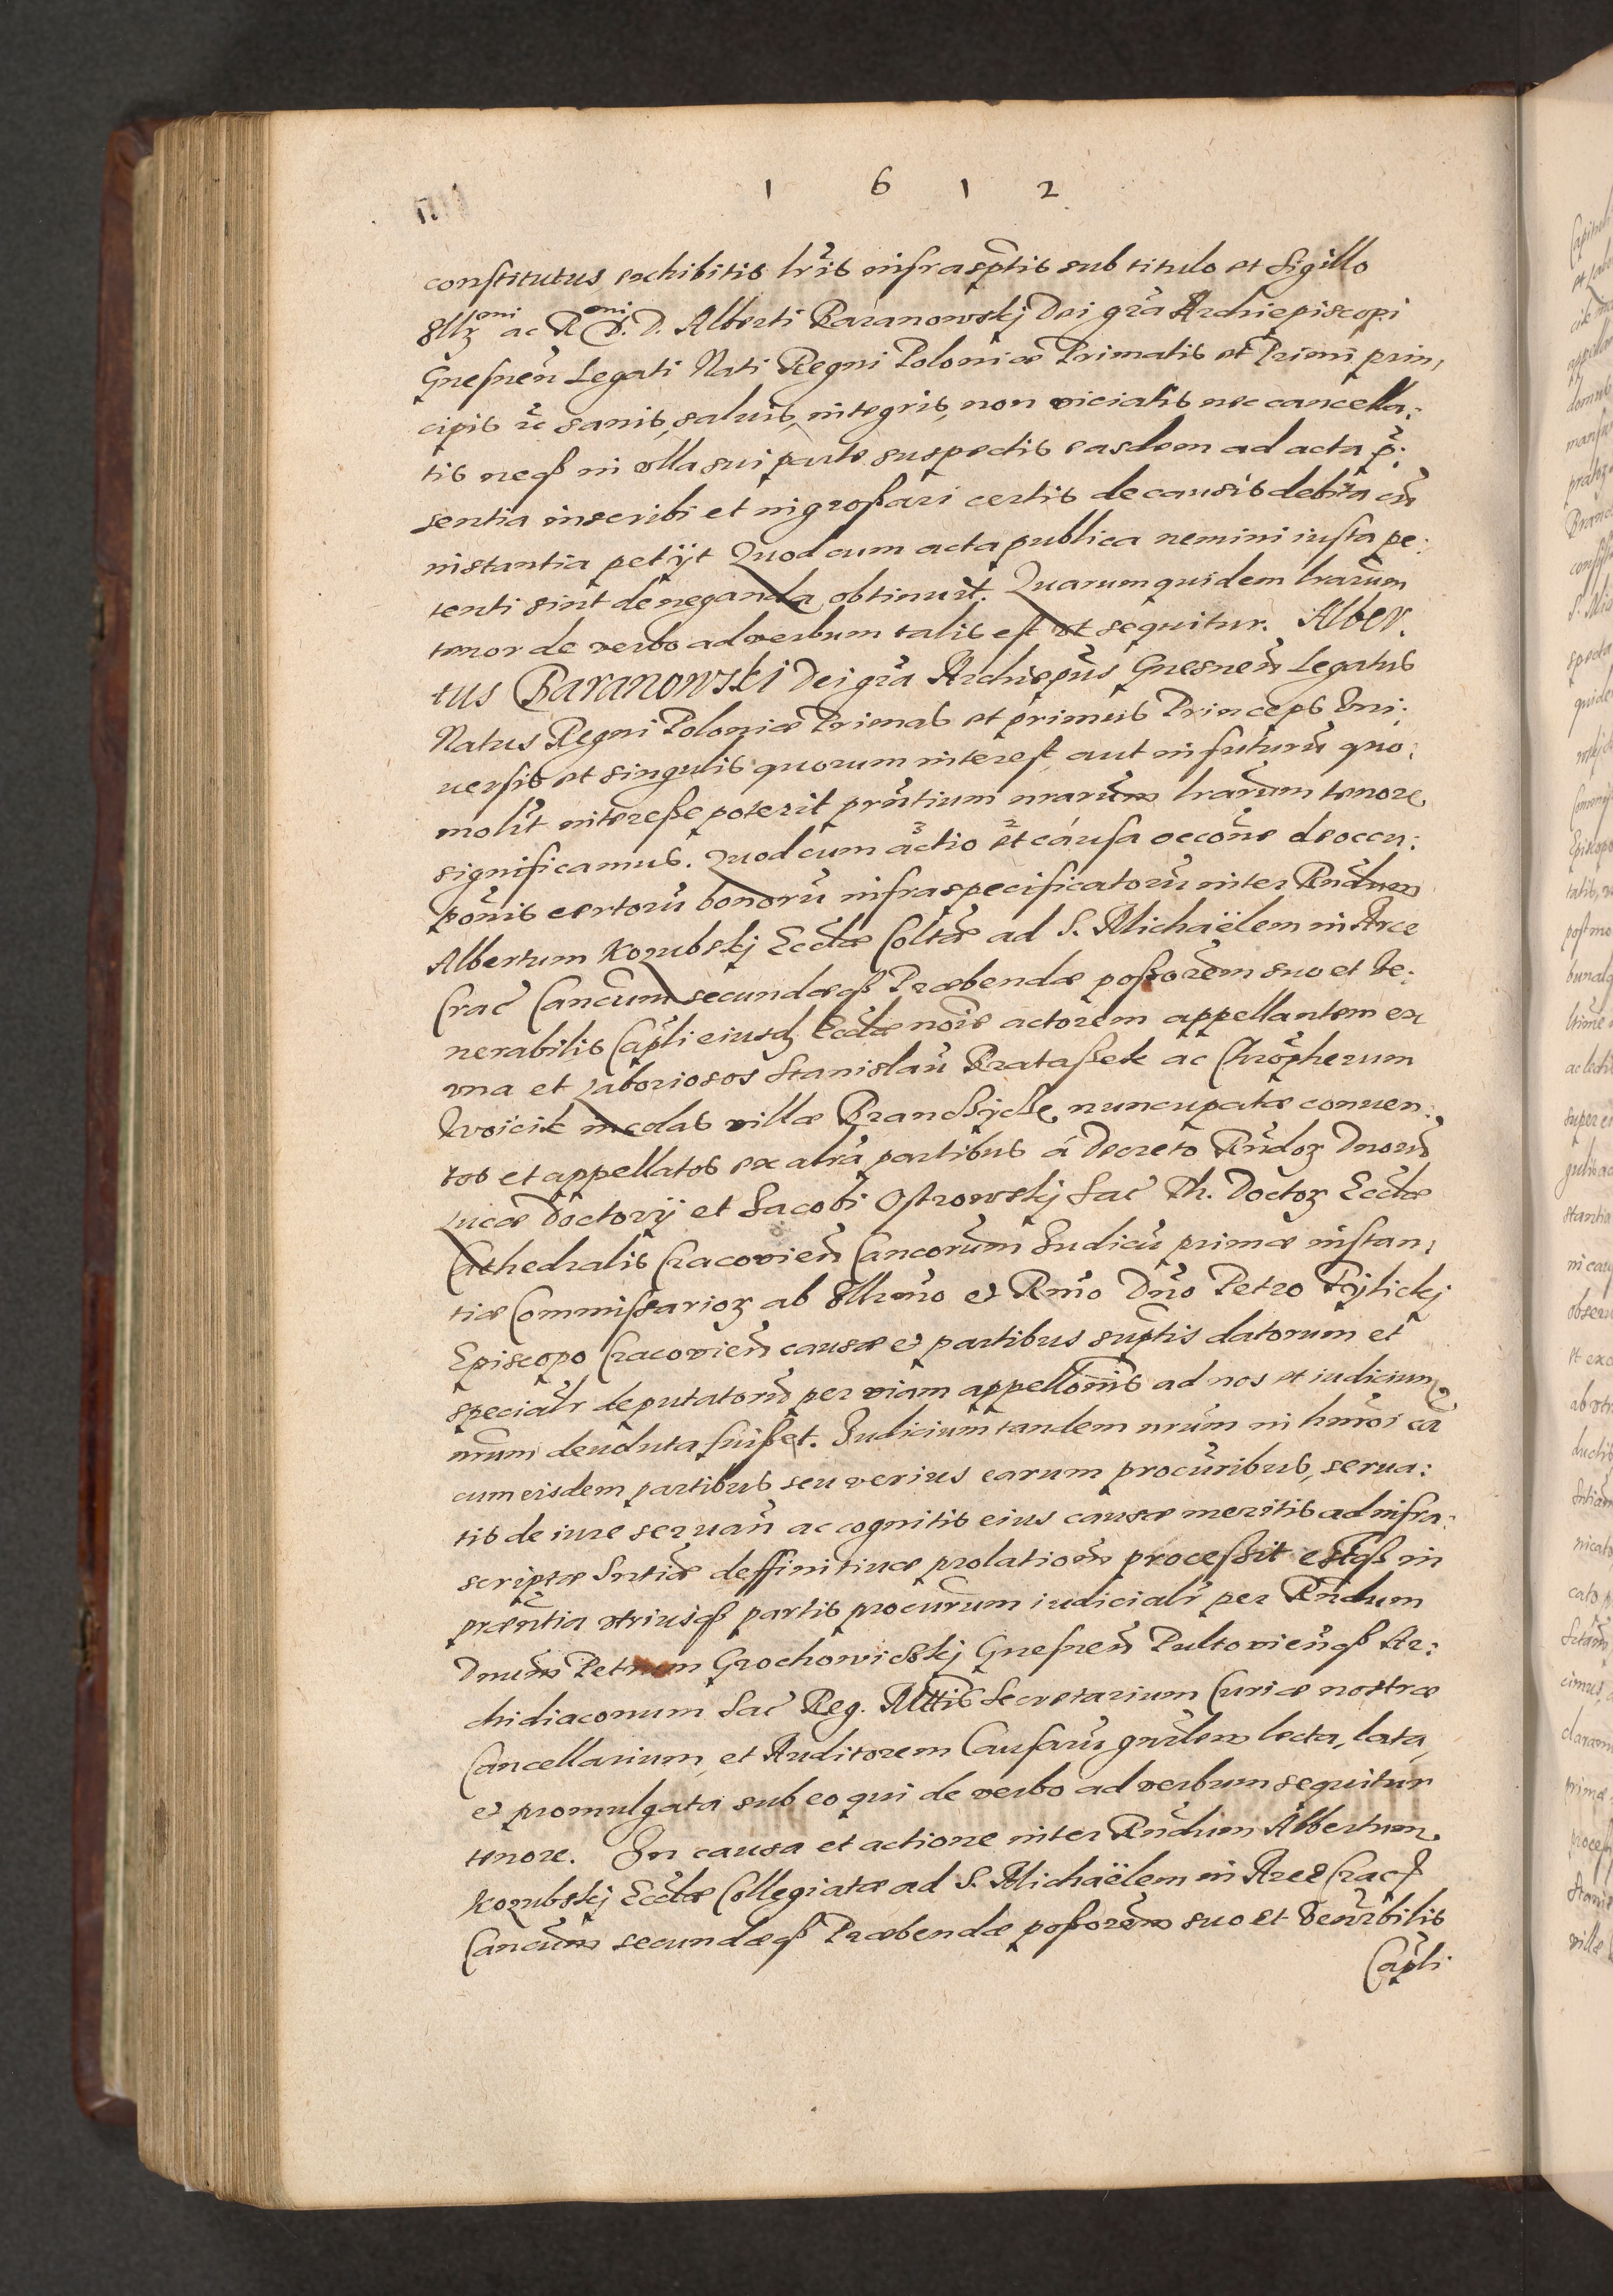 1 6 1 2
constitutus exhibitis lr̃is infrasptis sub titulo et Sigillo
Illmi ac Rmi D. D. Alberti Baranowskj Dei gr̃a Archiepiscopi
Gnesnen̄ Legati Nati Regni Poloniæ Primatis et Primi prin,
cipis &c sanis, saluis, integris, non viciatis nec cancella:
tis neqȝ in vlla sui parte suspectis easdem ad acta p̃:
sentia inscribi et ingrossari certis de causis debita cū
instantia petijt Quod cum acta publica nemini iusta pe:
tenti sint deneganda obtinuit. Quarum quidem lr̃arum
tenor de verbo ad verbum talis est vt sequitur. Alber.
tus Baranowski Dei gr̃a Archiepūs Gnesnen̄ Legatus
Natus Regni Poloniæ Primas et primus Princeps Vni:
uersis et singulis quorum interest, aut in futurū quo:
molr̃t interesse poterit prn̄tium nrarum lr̃arum tenore
significamus. Quod cum actio et causa occõne deoccu:
põnis certorū bonorū infraspecificatorū inter Rn̄dum
Albertum Korubskj Eccl̃æ Coltæ ad S. Michaëlem in Arce
Crac̃ Can̄cum secundæqȝ Præbendæ possorem suo et Ve:
nerabilis Capli eiusdȝ Eccl̃æ noīe actorem appellantem ex
vna et Laboriosos Stanislaū Krataßek ac Chrõpherum
Woicik incolas villæ Branczycze nuncupatæ conuen:
tos et appellatos ex altrã partibus á Decreto Rn̄doȝ Dnorū
Lucæ Doctorij et Jacobi Ostrowskj Sac̃ Th. Doctoȝ Eccl̃æ
Cathedralis Cracovien̄ Can̄corum Judicū primæ instan,
tiæ Commissarioȝ ab Illmo et Rmo Dn̄o Petro Tylickj
Episcopo Cracovien̄ causæ et partibus suptis datorum et
specialr̃ deputatorū per viam appellõnis ad nos et iudicium
nrum deuoluta fuisset. Judicium tandem nrum in hmõi cã
cum eisdem partibus seu verius earum procuribus, serua:
tis de iure seruan̄ ac cognitis eius causæ meritis ad infra:
scriptæ Sntiæ deffinitiuæ prolationem processit estqȝ in
præntia vtriusqȝ partis procurum iudicialr̃ per Rn̄dum
Dnum Petrum Grochowickj Gnesnen̄ Pultovien̄qȝ Ar:
chidiaconum Sac̃ Reg. Mttis Secretarium Curiæ nostræ
Cancellarium, et Auditorem Causarū gn̄rlem lecta, lata,
et promulgata sub eo qui de verbo ad verbum sequitur
tenore. In causa et actione inter Rn̄dum Albertum
Korubskj Eccl̃æ Collegiatæ ad S. Michaëlem in Arce Crac̃
Can̄cum secundæqȝ Præbendæ possorem suo et Venr̃bilis
Capli